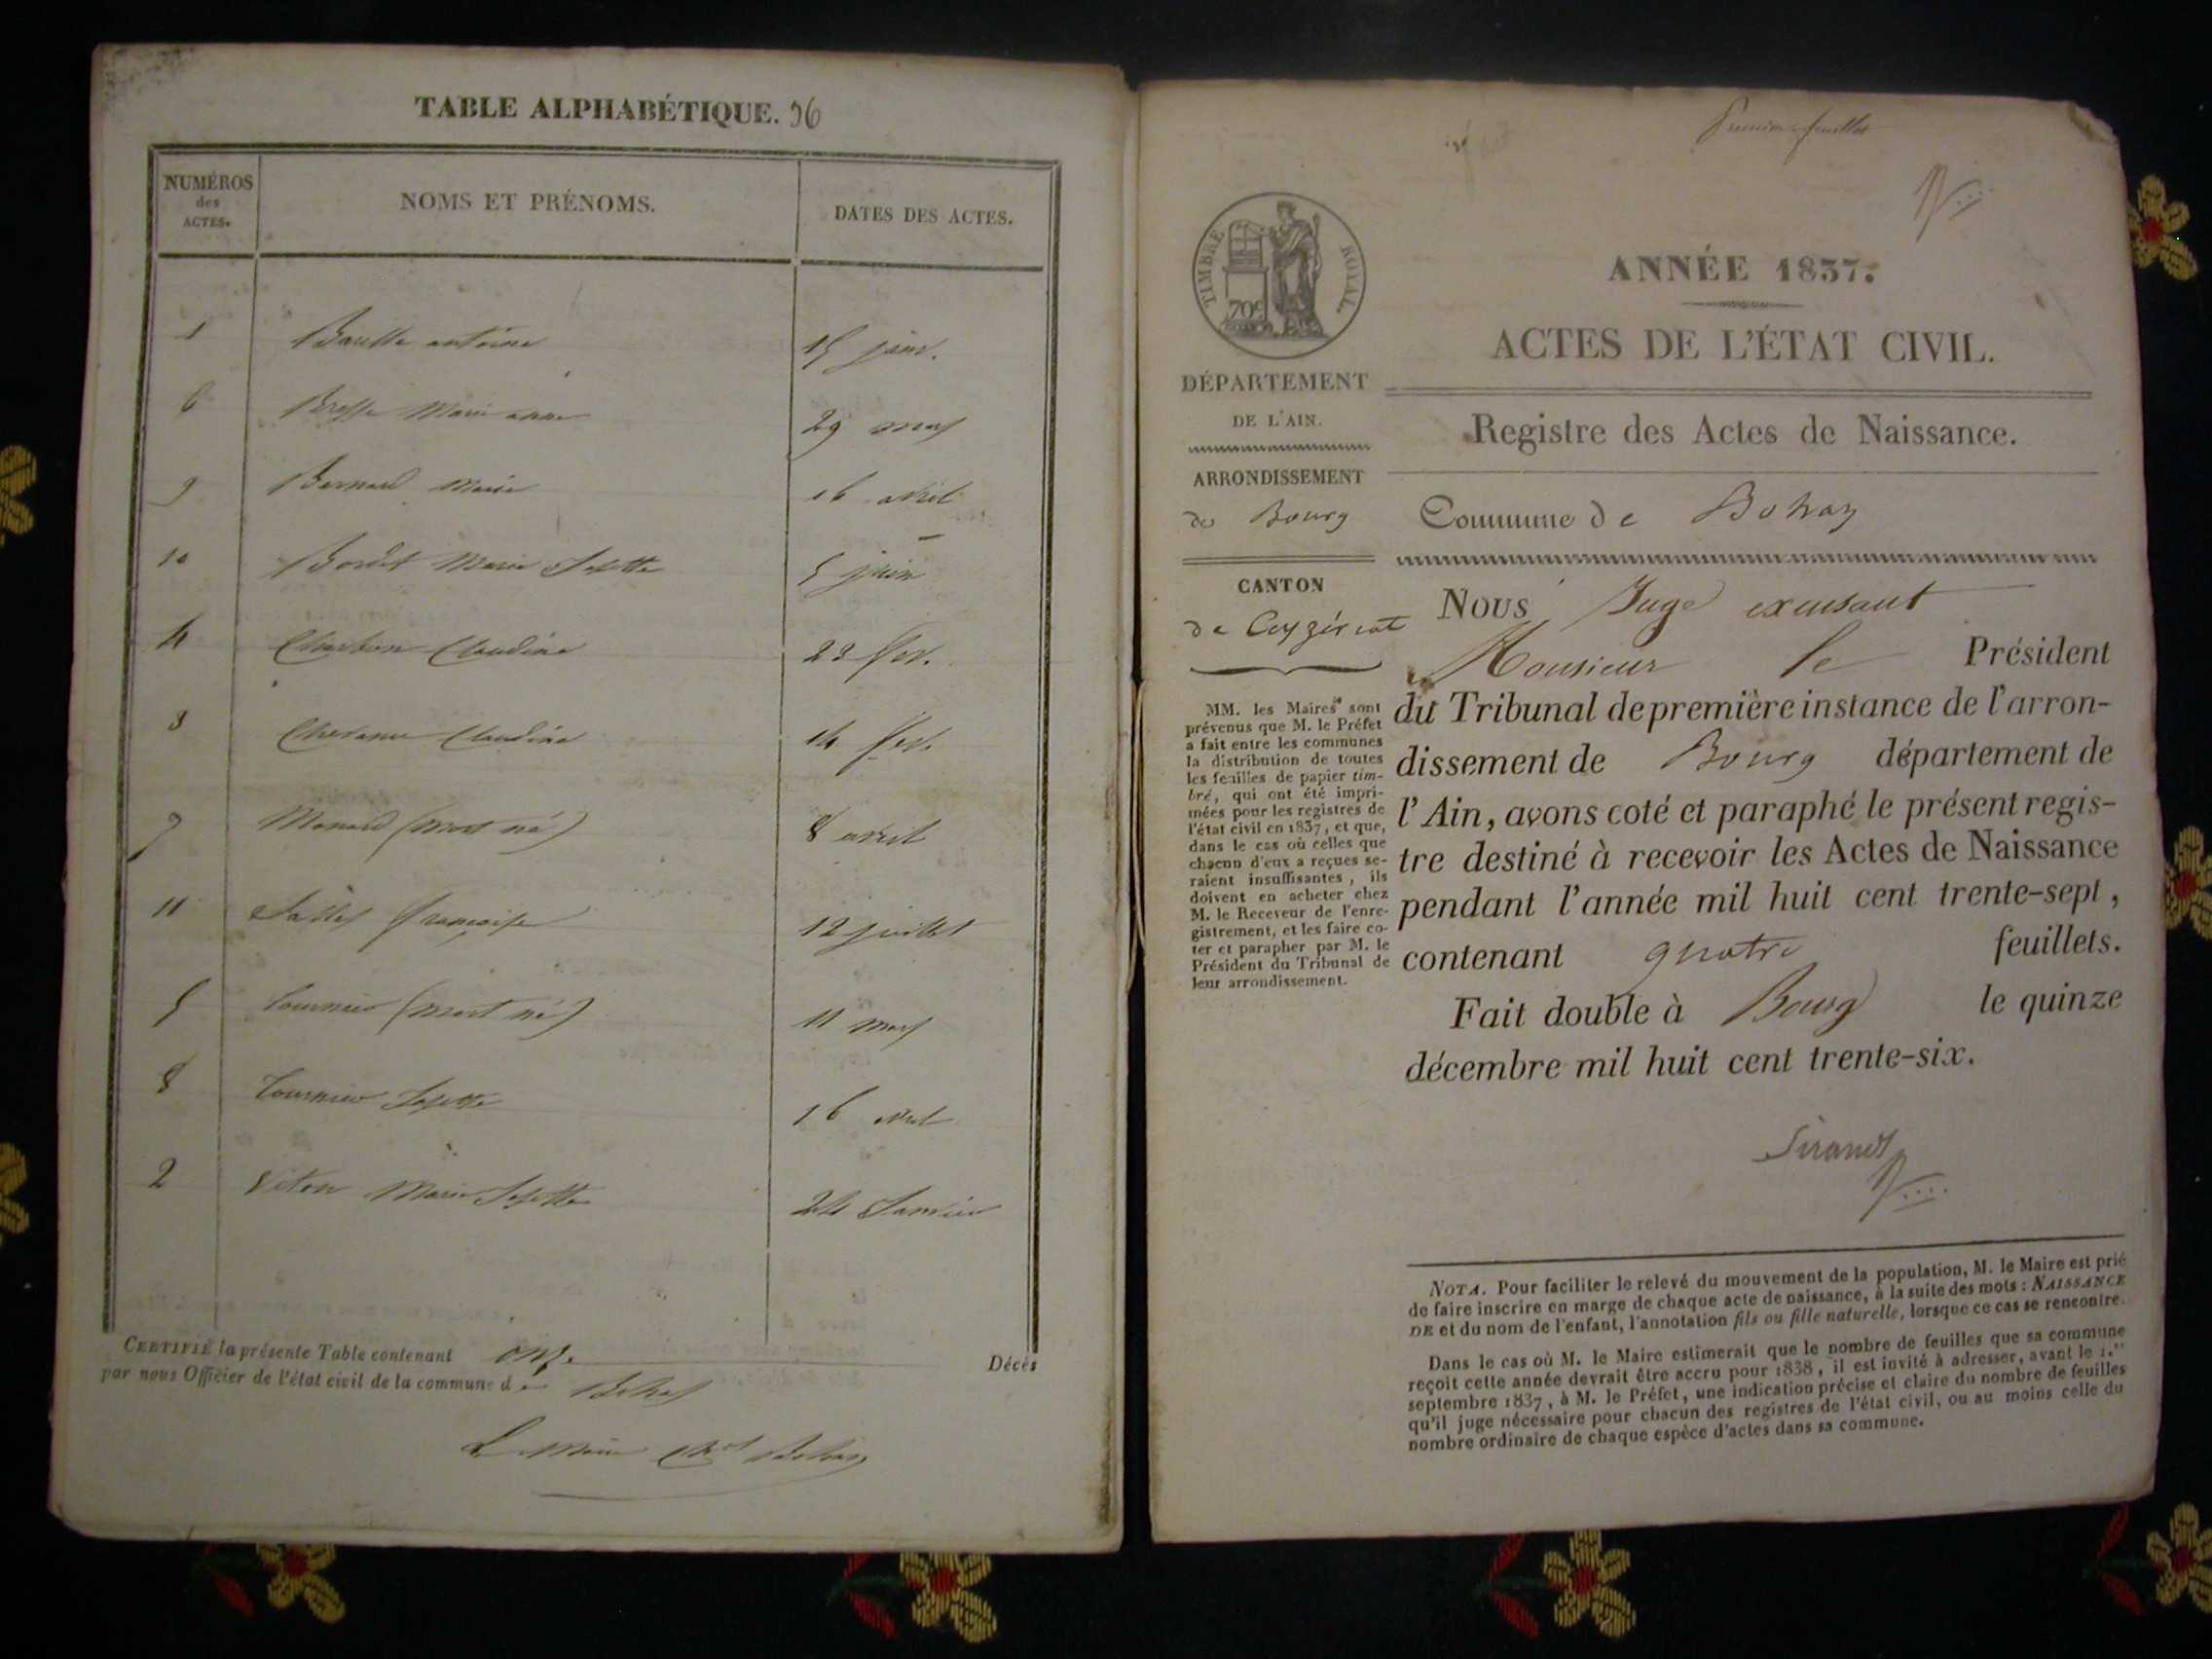 TABLE ALPHABÉTIQUE. 36
NUMÉROS des ACTES. NOMS ET PRÉNOMS. DATES DES ACTES.
1 antoine 15 janv.
6 Marie anne 29 mars
9 Bernard Marie 16 avril
10 Marie Josette 5 juin
4 Claudine 22 fev.
3 Claudine 14 fev.
7 (mort né) 8 avril
11 françoise 12 juillet
5 Tournier (mort né) 11 mars
8 Tournier Josette 16 avril
2 Viton Marie Josette 24 Janvier
CERTIFIÉ la présente Table contenant onze Décès
par nous Officier de l'état civil de la commune de Bohas
Le Maire
Premier feuillet
TIMBRE ROYAL.
70c
ANNÉE 1837.
ACTES DE L'ÉTAT CIVIL.
DÉPARTEMENT
DE L'AIN.
Registre des Actes de Naissance.
ARRONDISSEMENT
de Bourg
Commune de Bohas
CANTON
de Ceyzériat
MM. les Maires sont
prévenus que M. le Préfet
a fait entre les communes
la distribution de toutes
les feuilles de papier tim-
bré, qui ont été impri-
mées pour les registres de
l'état civil en 1837, et que,
dans le cas où celles que
chacun d'eux a reçues se-
raient insuffisantes, ils
doivent en acheter chez
M. le Receveur de l'enre-
gistrement, et les faire co-
ter et parapher par M. le
Président du Tribunal de
leur arrondissement.
Nous Juge excusant
Monsieur le Président
du Tribunal de première instance de l'arron-
dissement de Bourg département de
l'Ain, avons coté et paraphé le présent regis-
tre destiné à recevoir les Actes de Naissance
pendant l'année mil huit cent trente-sept,
contenant quatre feuillets.
Fait double à Bourg le quinze
décembre mil huit cent trente-six.
Sirand
NOTA. Pour faciliter le relevé du mouvement de la population, M. le Maire est prié
de faire inscrire en marge de chaque acte de naissance, à la suite des mots : NAISSANCE
DE et du nom de l'enfant, l'annotation fils ou fille naturelle, lorsque ce cas se rencontre.
Dans le cas où M. le Maire estimerait que le nombre de feuilles que sa commune
reçoit cette année devrait être accru pour 1838, il est invité à adresser, avant le 1.er
septembre 1837, à M. le Préfet, une indication précise et claire du nombre de feuilles
qu'il juge nécessaire pour chacun des registres de l'état civil, ou au moins celle du
nombre ordinaire de chaque espèce d'actes dans sa commune.